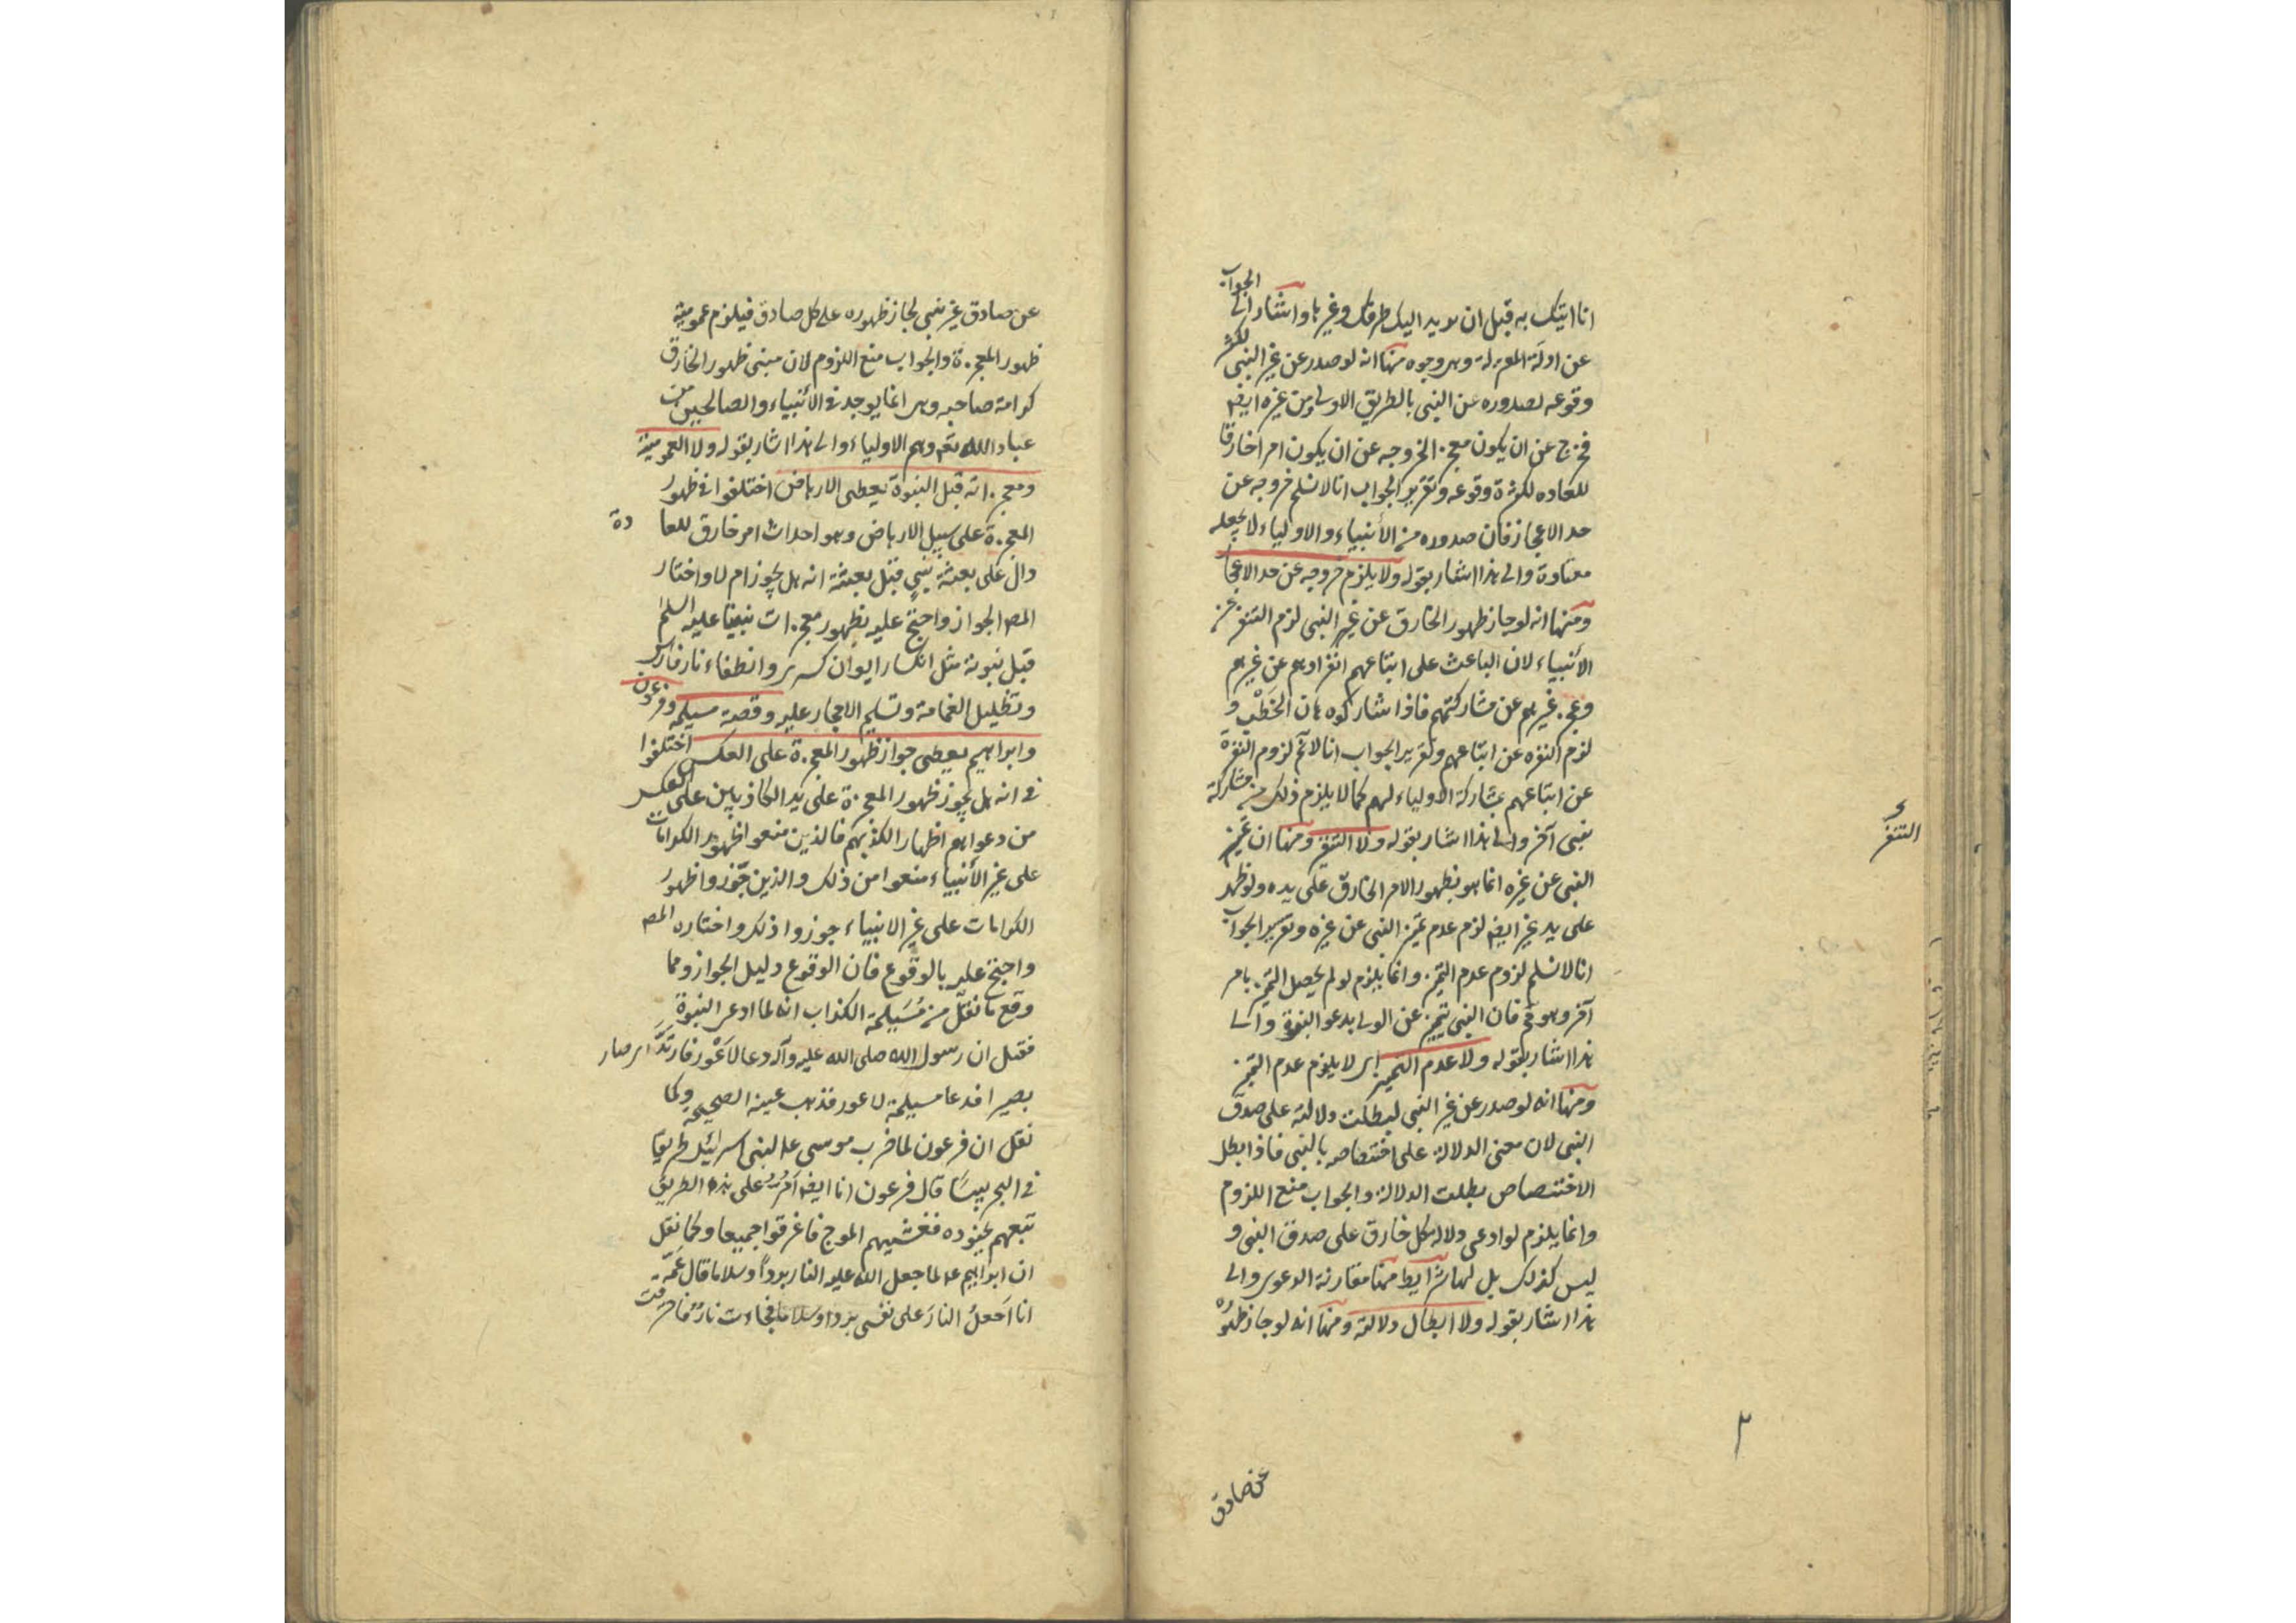 انا اتيك به قبل ان يرتد اليك طرفك وغيرها واشار الى الجواب
عن ادلة المعتزلة وهى وجوه منها انه لو صدر عن غير النبى لكثر
وقوعه لصدوره عن النبى بالطريق الاولى ومن غيره ايضه
فخرج عن ان يكون معجزا لخروجه عن ان يكون امرا خارقا
للعاده لكثرة وقوعه وتقرير الجواب انا لا نسلم خروجه عن
حد الاعجاز فان صدوره من الأنبياء والاولياء لا يجعله
معتادة والى هذا اشار بقوله ولا يلزم خروجه عن حد الاعجا
ومنها انه لو جاز ظهور الخارق عن غير النبى لزم التنفر عن
الأنبياء لان الباعث على اتباعهم انفرادهم عن غيرهم
وعجز غيرهم عن مشاركتهم فاذا شاركوه هان الخَطْب و
لزم النفره عن اتباعهم وتقرير الجواب انا لا نم لزوم النفرة
عن اتباعهم بمشاركة الاولياء لهم كما لا يلزم ذلك من مشاركة
نبى آخر والى هذا اشار بقوله ولا التنفر ومنها ان تميز
النبى عن غيره انما هو بظهور الامر الخارق على يده ولو ظهر
على يد غير ايضه لزم عدم تميز النبى عن غيره وتقرير الجواب
انا لا نسلم لزوم عدم التميز وانما يلزم لو لم يحصل التميز بامر
آخر وهو مم فان النبى تتميز عن الولى بدعو النبوة والى
هذا اشار بقوله ولا عدم التميز اى لا يلزم عدم التميز
ومنها انه لو صدر عن غير النبى لبطلت دلالته على صدق
النبى لان معنى الدلالة على اختصاصه بالنبى فاذا بطل
الاختصاص بطلت الدلالة والجواب منع اللزوم
وانما يلزم لو ادعى دلالة كل خارق على صدق النبى و
ليس كذلك بل لها شرايط منها مقارنة الدعوى والى
هذا اشار بقوله ولا ابطال دلالته ومنها انه لو جاز ظهوره
عن صادق
و
التنفر
عن صادق غير نبى لجاز ظهوره على كل صادق فيلزم عمومية
ظهور المعجزة والجواب منع اللزوم لان مبنى ظهور الخارق
كرامة صاحبه وهى انما يوجد فى الأنبياء والصالحين من
عباد الله تعه وهم الاولياء والى هذا اشار بقوله ولا العمومية
ومعجزاته قبل النبوة يعطى الارهاص اختلفوا فى ظهور
المعجزة على سبيل الارهاص وهو احداث امر خارق للعا دة
دال على بعثة نَبِىٍّ قبل بعثته انه هل يجوز ام لا واختار
المصه الجواز واحتج عليه بظهور معجزات نبينا عليه السلم
قبل نبوته مثل انكسار ايوان كسرى وانطفاء نار فارس
وتظليل الغمامة وتسليم الاحجار عليه وقصة مسيلمة وفرعون
وابراهيم يعطى جواز ظهور المعجزة على العكس اختلفوا
فى انه هل يجوز ظهور المعجزة على يد الكاذبين على العكس
من دعواهم اظهارا لكذبهم فالذين منعوا ظهور الكرامات
على غير الأنبياء منعوا من ذلك والذين جوّزوا ظهور
الكرامات على غير الانبياء جوزوا ذلك واختاره المصه
واحتج عليه بالوقوع فان الوقوع دليل الجواز ومما
وقع ما نقل من مُسَيلمة الكذاب انه لما ادعى النبوة
فقيل ان رسول الله صلى الله عليه وآله دعا لاَعْور فارتدَّ اى صار
بصيرا فدعا مسيلمة لاعور فذهب عينه الصحيحة وكما
نقل ان فرعون لما ضرب موسى عه لبنى اسرائيل طريقا
فى البحر يبسًا قال فرعون انا ايضه اَمُرّ على هذه الطريق
تبعهم بجنوده فغشيهم الموج فاغرقوا جميعا وكما نقل
ان ابراهيم عه لما جعل الله عليه النار بردا وسلاما قال عَمّه
انا اَجعلُ النارَ على نفسى بردا وسلاما فجاءت نارٌ فاحرقت